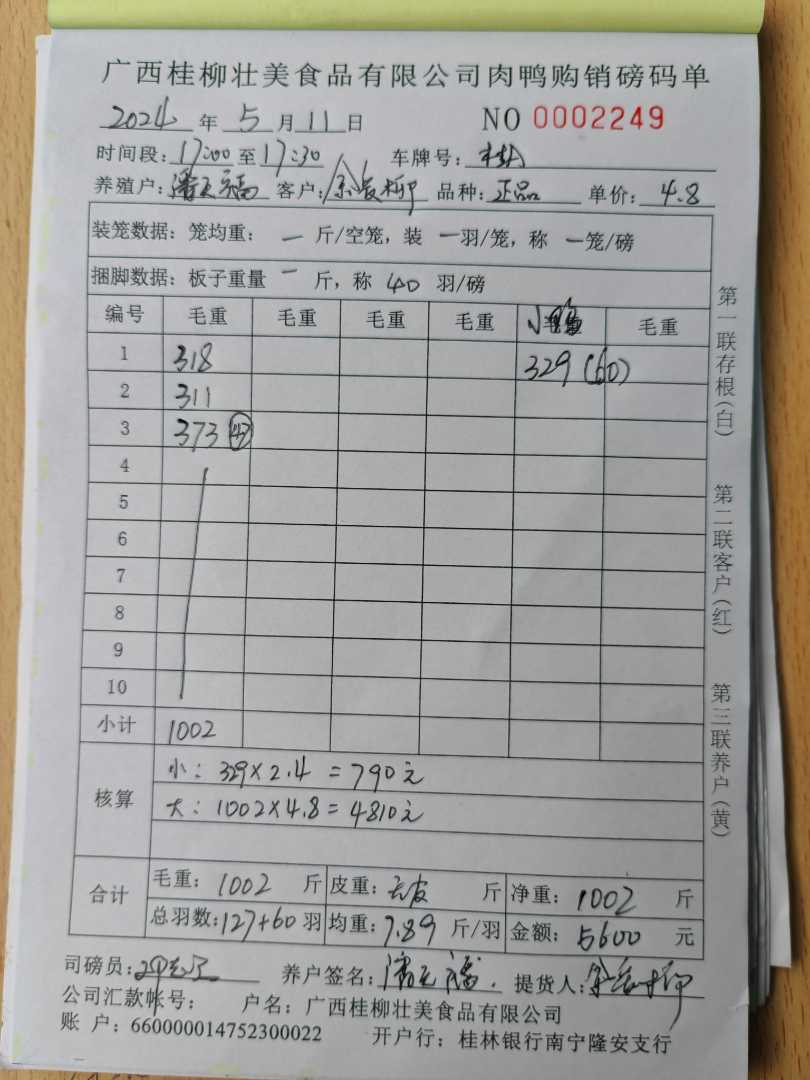 广西桂柳壮美食品有限公司肉鸭购销磅码单
2024年 5月11日 NO 0002249
时间段：17:00至17:30 车牌号：
养殖户：潘天福 客户：余 柳 品种：正品 单价：4.8
装笼数据：笼均重： 一 斤/空笼，装 一羽/笼，称 一笼/磅
捆脚数据：板子重量 一 斤，称 40 羽/磅
编号 毛重 毛重 毛重 毛重 小鸭 毛重
1 318 329 (60)
2 311
3 373
4
5
6
7
8
9
10
小计 1002
核算 小：329×2.4 =790元
大：1002×4.8=4810元
合计 毛重：1002 斤 皮重：去皮 斤 净重：1002 斤
总羽数：127+60羽 均重：7.89 斤/羽 金额：5600 元
司磅员： 养户签名：潘天福 提货人：余 柳
公司汇款帐号： 户名：广西桂柳壮美食品有限公司
账 户：660000014752300022 开户行：桂林银行南宁隆安支行
第一联存根(白) 第二联客户(红) 第三联养户(黄)